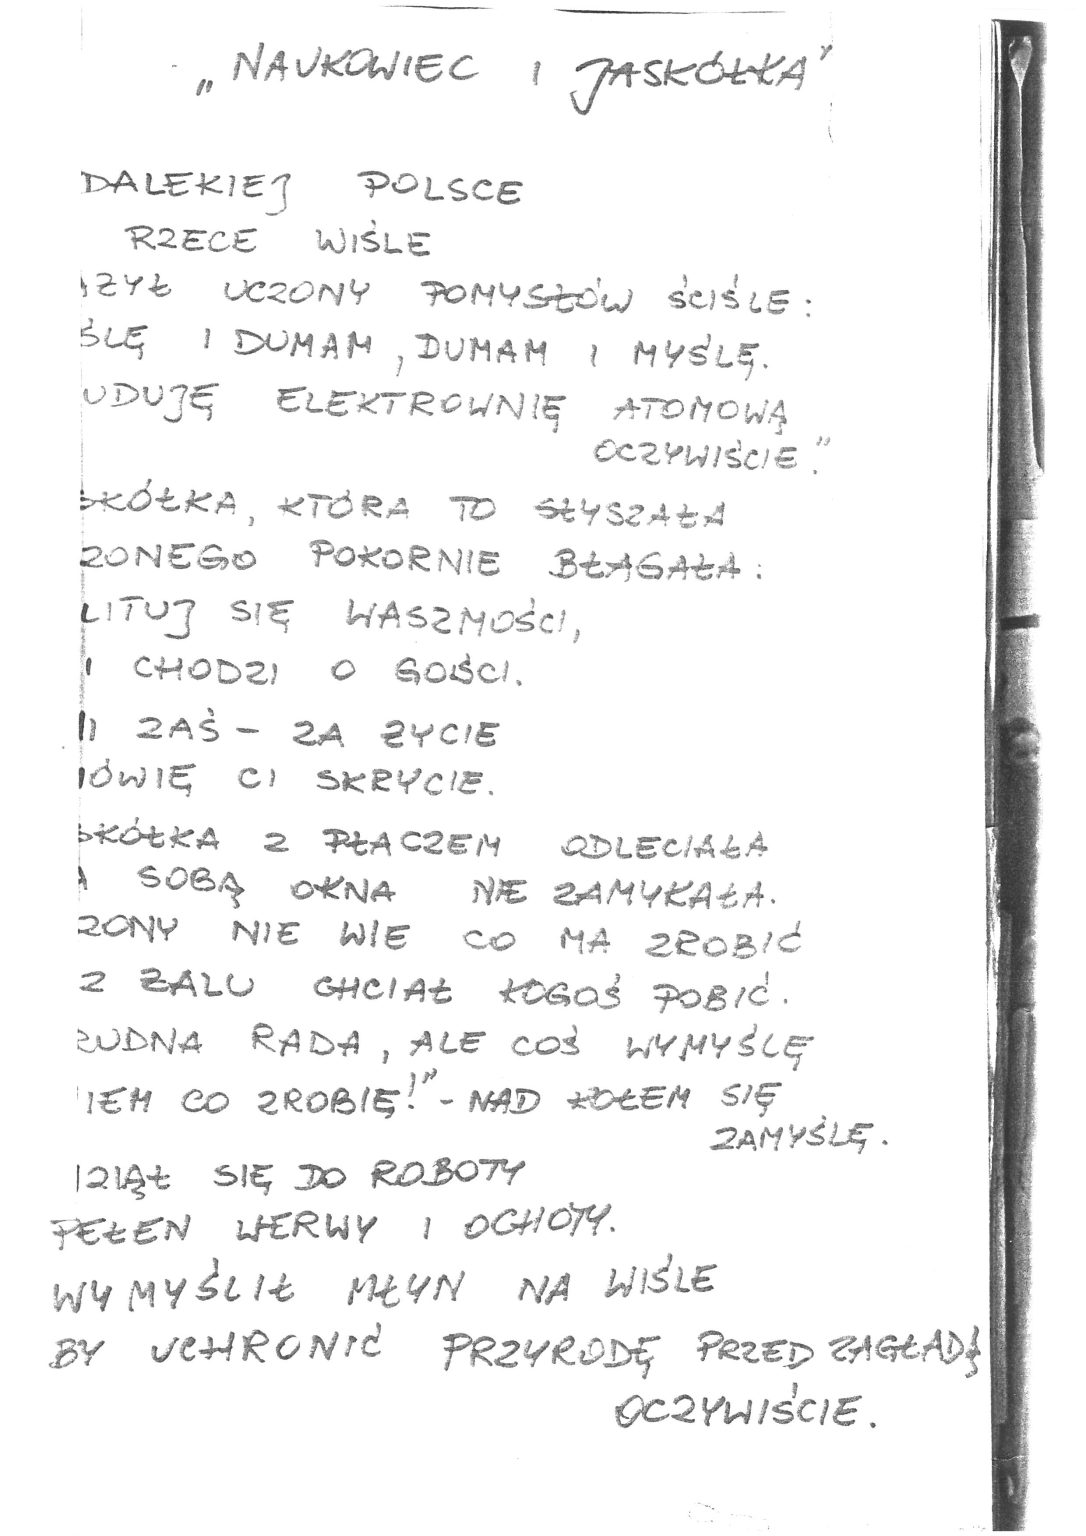 „NAUKOWIEC I JASKÓŁKA”
DALEKIEJ POLSCE
RZECE WIŚLE
ZYŁ UCZONY POMYSŁÓW ŚCIŚLE:
ŚLĘ I DUMAM, DUMAM I MYŚLĘ.
UDUJĘ ELEKTROWNIĘ ATOMOWĄ
OCZYWIŚCIE."
SKÓŁKA, KTÓRA TO SŁYSZAŁA
ZONEGO POKORNIE BŁAGAŁA:
LITUJ SIĘ WASZMOŚCI,
I CHODZI O GOŚCI.
I ZAŚ - ZA ŻYCIE
MÓWIĘ CI SKRYCIE.
SKÓŁKA Z PŁACZEM ODLECIAŁA
A SOBĄ OKNA NIE ZAMYKAŁA.
ZONY NIE WIE CO MA ZROBIĆ
Z ŻALU CHCIAŁ KOGOŚ POBIĆ.
RUDNA RADA, ALE COŚ WYMYŚLĘ
IEM CO ZROBIĘ!” - NAD KOŁEM SIĘ
ZAMYŚLĘ.
ZIĄŁ SIĘ DO ROBOTY
PEŁEN WERWY I OCHOTY.
WYMYŚLIŁ MŁYN NA WIŚLE
BY UCHRONIĆ PRZYRODĘ PRZED ZAGŁADĄ
OCZYWIŚCIE.